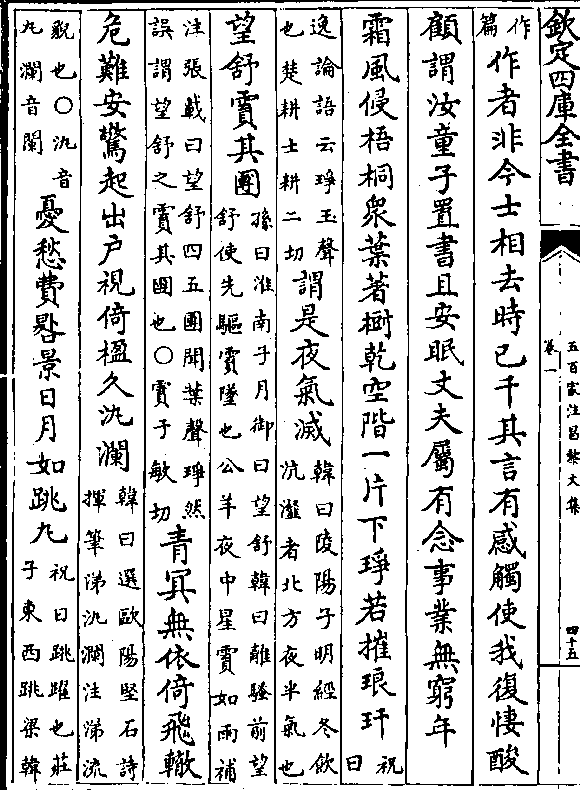 欽定四庫全書
五百家注昌黎文集
卷一
四十五
作篇作者非今士相去時已千其言有感觸使我復悽酸
顧謂汝童子置書且安眠丈夫屬有念事業無窮年
霜風侵梧桐衆葉著樹乾空階一片下琤若摧琅玕祝曰
逸論語云琤玉聲也楚耕士耕二切謂是夜氣滅韓曰陵陽子明經冬飲沆瀣者北方夜半氣也
望舒霣其團孫曰淮南子月御曰望舒韓曰離騷前望舒使先驅霣墜也公羊夜中星霣如雨補
注張載曰望舒四五團聞葉聲琤然誤謂望舒之霣其團也○霣于敏切青冥無依倚飛轍
危難安驚起出戶視倚楹久汍瀾韓曰選歐陽堅石詩揮筆涕汍瀾注涕流
貌也○汍音丸瀾音闌憂愁費晷景日月如跳丸祝曰跳躍也莊子東西跳梁韓